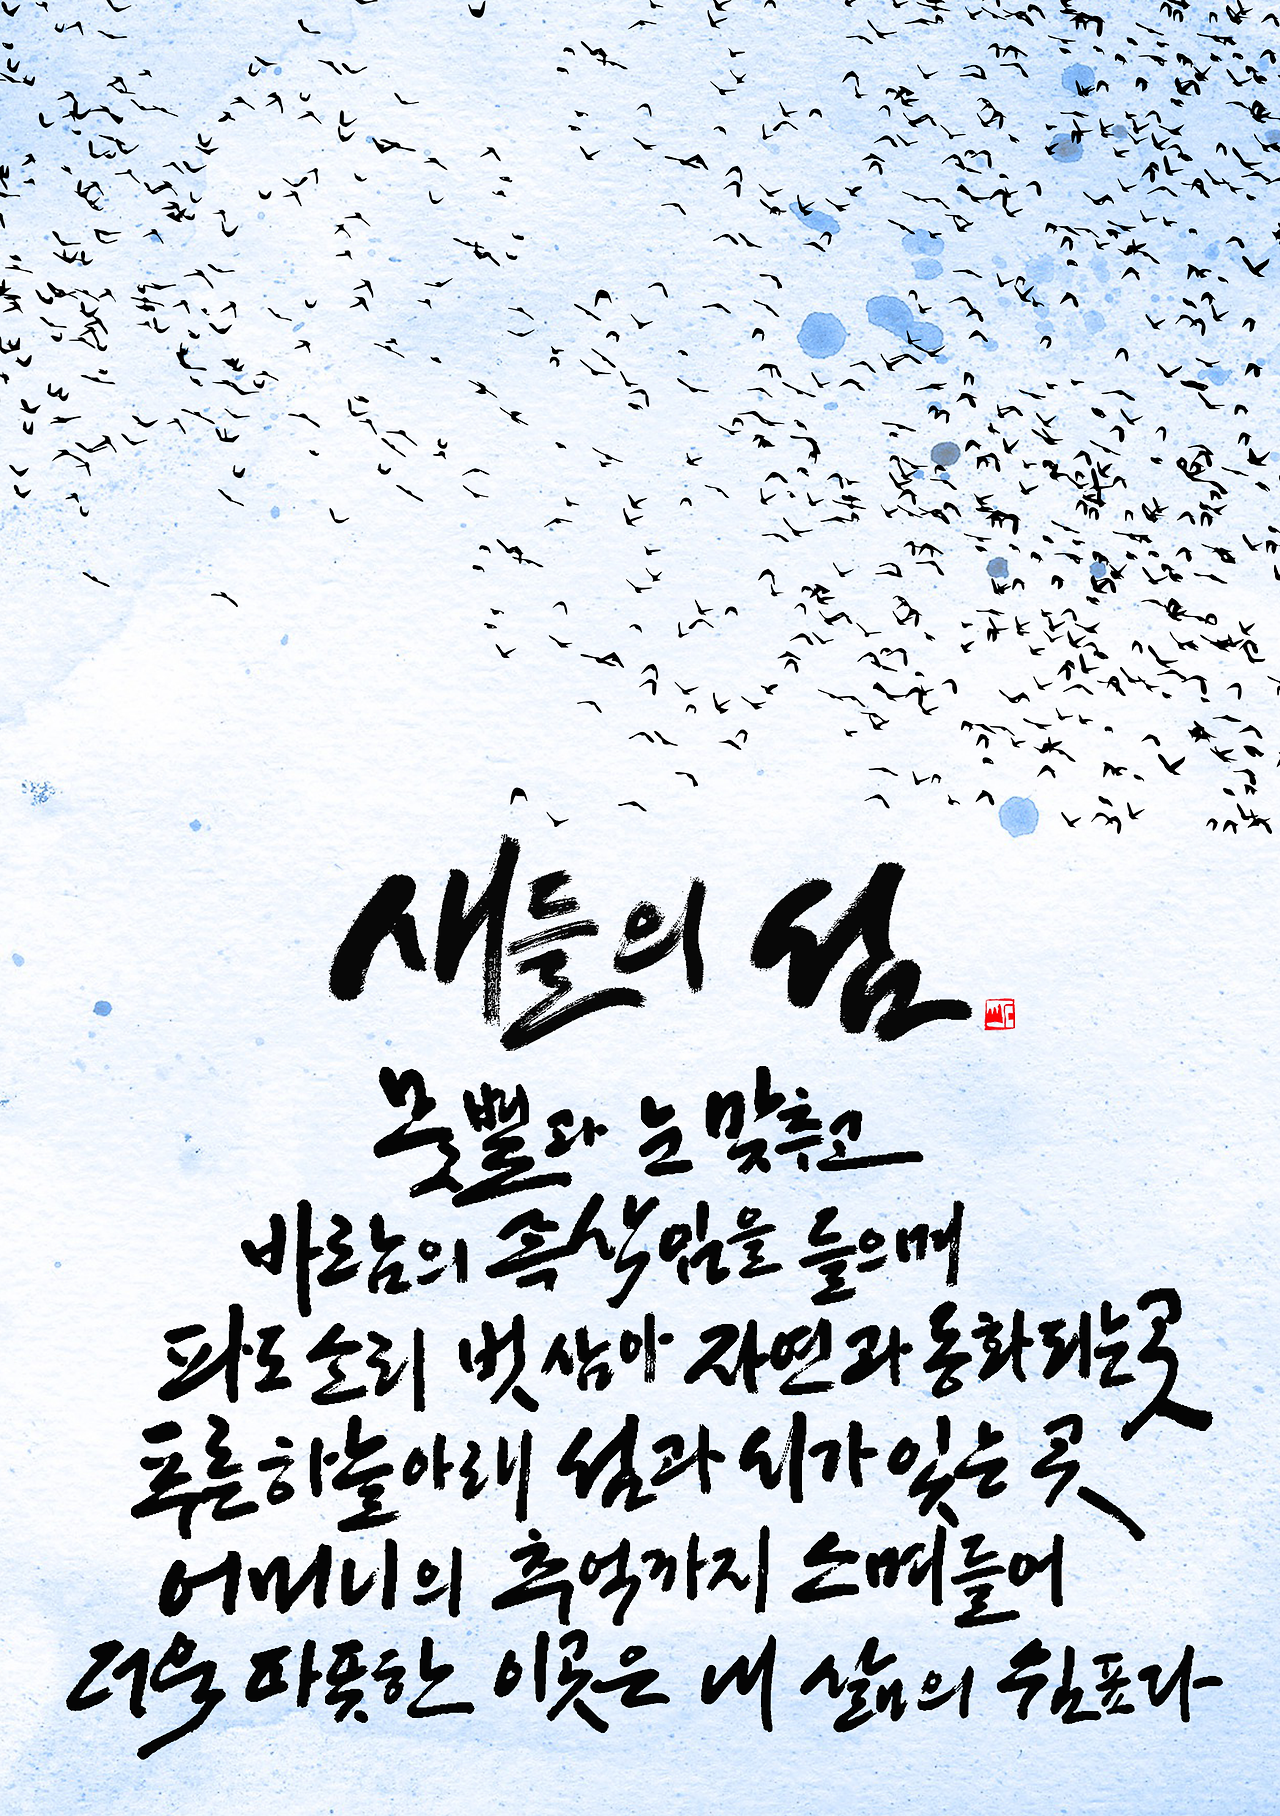 새들의 섬
못뻘과 눈 맞추고
바람의 속삭임을 들으며
파도소리 벗 삼아 자연과 동화되는 곳
푸른 하늘 아래 섬과 시가 있는 곳
어머니의 추억까지 스며들어
더욱 따뜻한 이곳은 내 삶의 쉼표다